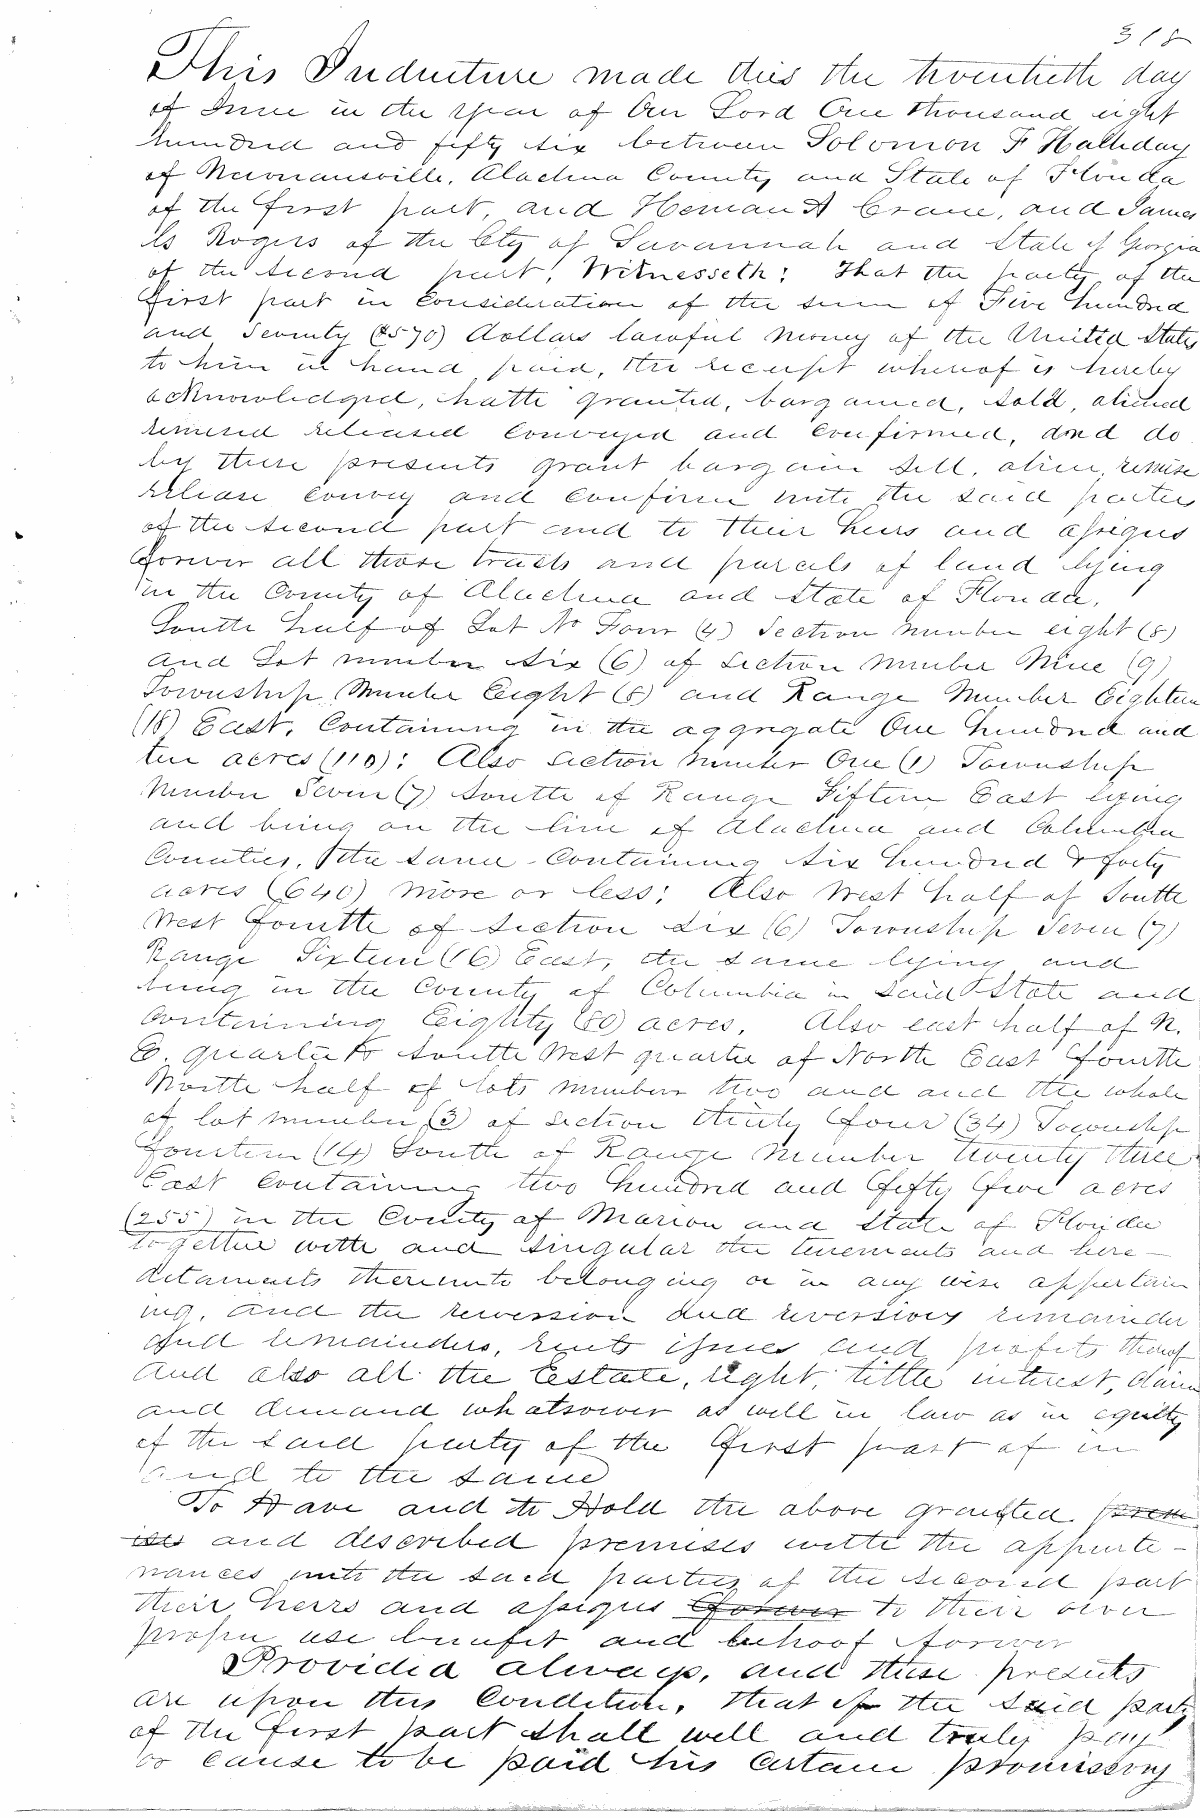 318
This Indenture made this the twentieth day
of June in the year of Our Lord One thousand eight
hundred and fifty six between Solomon F Halliday
of Newnansville, Alachua County and State of Florida
of the first part, and Heman A Crane, and James
Rogers of the City of Savannah and State of Georgia
of the second part, Witnesseth; That the party of the
first part in consideration of the sum of Five hundred
and seventy ($570) dollars lawful money of the United States
to him in hand paid, the receipt whereof is hereby
acknowledged, hath granted, bargained, sold, aliened
remised released conveyed and confirmed, and do
by these presents grant bargain sell, alien, remise
release convey and confirm unto the said parties
of the second part and to their heirs and assigns
forever all those tracts and parcels of land lying
in the County of Alachua and State of Florida,
South half of Lot No Four (4) Section number eight (8)
and Lot number six (6) of section number Nine (9)
Township Number Eight (8) and Range Number Eighteen
(18) East, Containing in the aggregate One hundred and
ten acres (110); Also section number One (1) Township
Number Seven (7) South of Range Fifteen East lying
and being on the line of Alachua and Columbia
Counties, the same containing six hundred & forty
acres (640) more or less; Also West half of South
West fourth of section six (6) Township Seven (7)
Range Sixteen (16) East, the same lying and
being in the County of Columbia in said State and
containing Eighty (80) acres. Also east half of N.
E. quarter & South West quarter of North East fourth
North half of lots number two and and the whole
of lot number (3) of section thirty four (34) Township
fourteen (14) South of Range number twenty three
East containing two hundred and fifty five acres
(255) in the County of Marion and State of Florida
together with and singular the tenements and here-
ditaments thereunto belonging or in any wise appertain
ing, and the reversion and reversions remainder
and remainders, rents issues and profits thereof
and also all the Estate, right, tittle interest, claim
and demand whatsoever as well in law as in equity
of the said party of the first part of in
and to the same
To Have and to Hold the above granted prem
ises and described premises with the appurte-
nances unto the said parties of the second part
their heirs and assigns forever to their own
proper use benefit and behoof forever
Provided always, and these presents
are upon this Condition, that if the said party
of the first part shall well and truly pay
or cause to be paid his certain promissory